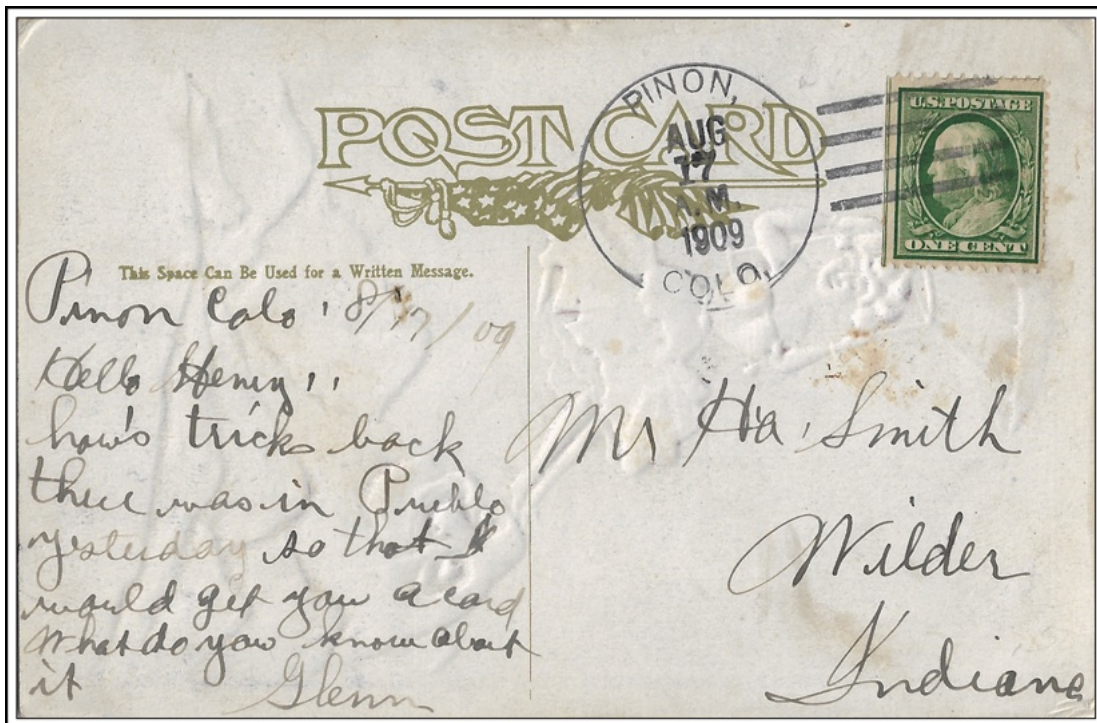 POST CARD
PINON,
AUG
17
A.M.
1909
COLO.
U.S. POSTAGE
ONE CENT
This Space Can Be Used for a Written Message.
Pinon Colo, 8/17/09
Hello Henry,,
how's tricks back
there was in Pueblo
yesterday so that I
would get you a card
What do you know about
it Glenn
Mr Ha. Smith
Wilder
Indiana